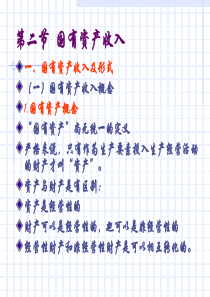 第二节 国有资产收入
一、国有资产收入及形式
（一）国有资产收入概念
1.国有资产概念
“国有资产”尚无统一的定义
严格来说，只有作为生产要素投入生产经营活动
的财产才叫“资产”。
资产与财产是有区别：
资产是经营性的
财产可以是经营性的，也可以是非经营性的
经营性财产和非经营性财产是可以相互转化的。